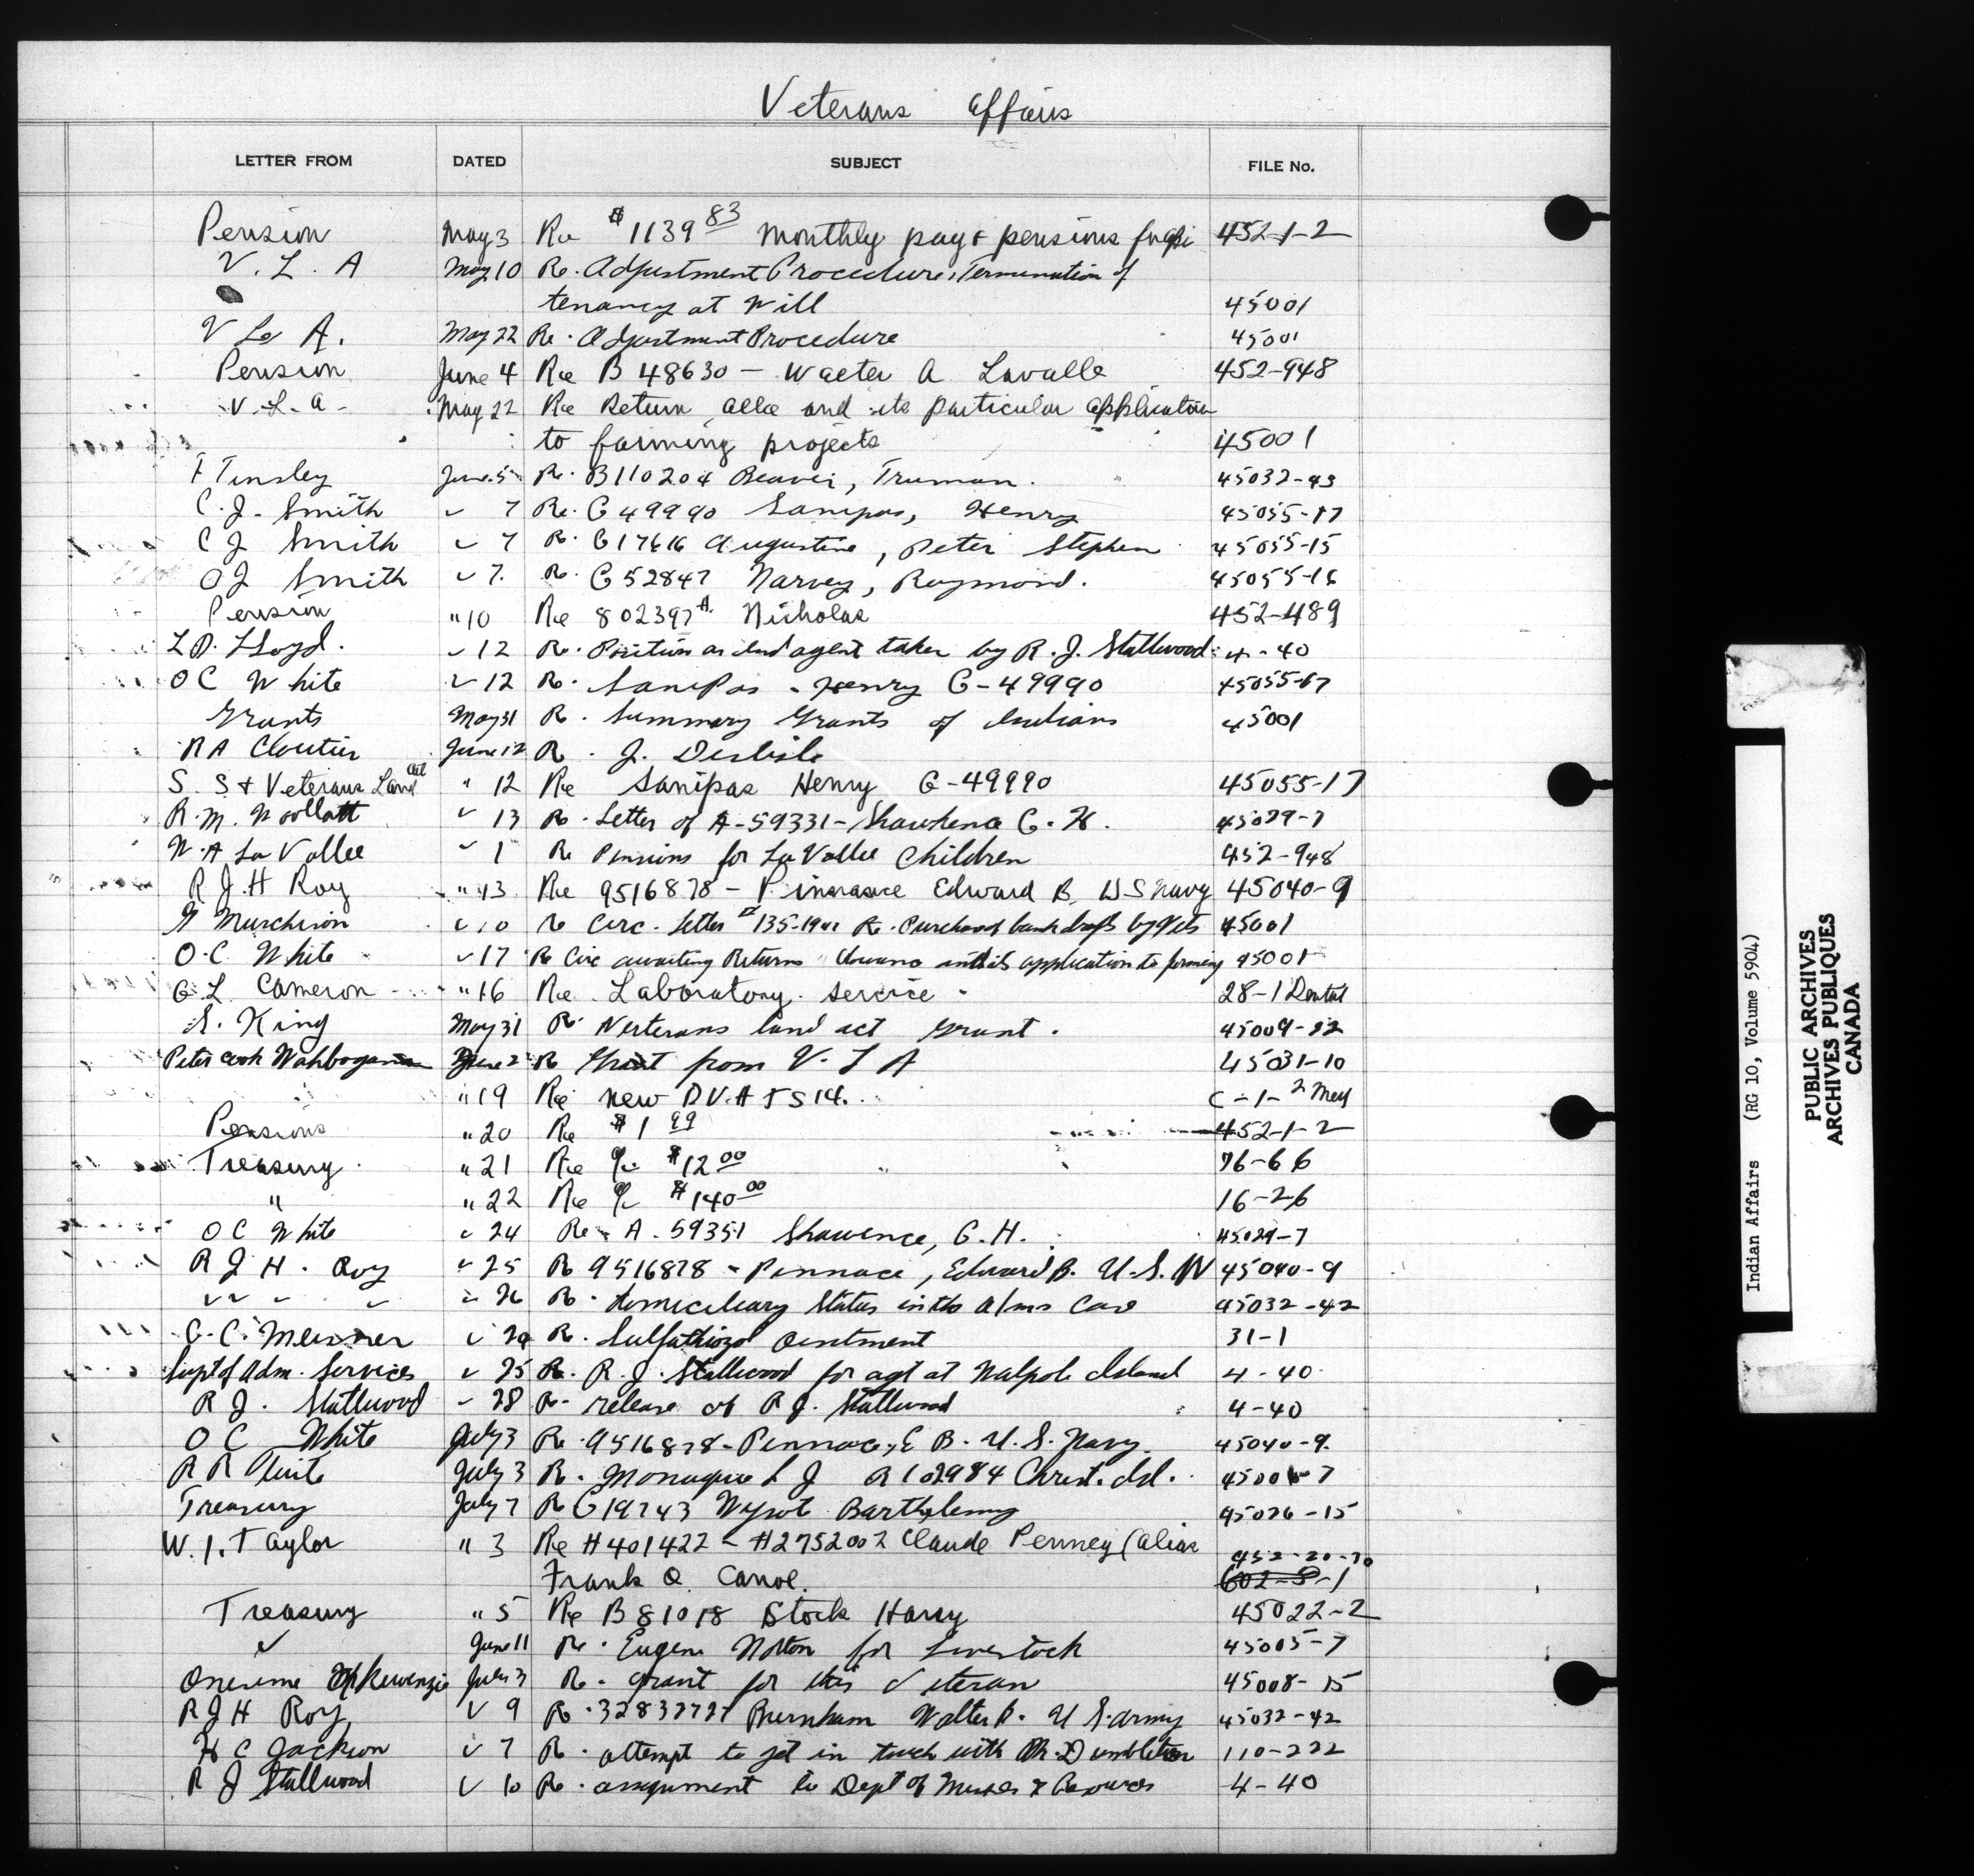 Veterans Affairs
LETTER FROM DATED SUBJECT FILE No.
Pension May 3 Re $1139 83 monthly pay & pensions 452-1-2
V. L. A May 10 Re. Adjustment Procedure, Termination of
tenancy at Will 45001
V L A. May 22 Re. Adjustment Procedure 45001
Pension June 4 Re B 48630 - Walter A Lavalle 452-948
V. L. A - May 22 Re Return and its particular application
to farming projects 45001
F Tinsley June 5 Re. B110204 Beaver, Truman. 45032-43
C. J. Smith 7 Re. G 49990 Sanipas, Henry 45055-17
C J Smith 7 R. G17616 Augustine, Peter Stephen 45055-15
C J Smith 7. R. G 52847 Narvey, Raymond. 45055-16
Pension "10 Re 802397 A. Nicholas 452-489
L D. Lloyd. 12 R. Position as Ind agent taken by R. J. Stallwood 4-40
O C White 12 R. Sanipas - Henry G-49990 45055-17
Grants May 31 R. Summary Grants of Indians 45001
R A Cloutier June 12 R. J. Deslisle
S. S & Veterans Land Act " 12 Re Sanipas Henry G-49990 45055-17
R. M. Woollatt 13 R. Letter of A-59331- G. H. 45029-7
W. A La Vallee 1 Re Pensions for La Vallee Children 452-948
R J. H Roy "13 Re 9516878 - Edward B. U S Navy 45040-9
G Murchison 10 Re Circ. Letter # 135- Re. Purchase of bank drafts by Vets 45001
O. C White 17 Re Circ awaiting Returns and its application to farming 45001
G L Cameron "16 Re. Laboratory. service - 28-1 Dental
S. King May 31 R. Veterans land act grant. 45009-22
Peter Cook June 2 R Grant from V. L A 45031-10
"19 Re new D V. A T S 14. C-1-2 Med
Pensions "20 Re $1 99 452-1-2
Treasury "21 Re $12 00 76-66
" "22 Re $140 00 16-26
O C White 24 Re. A. 59351 Shawence, G. H. 45029-7
R J H. Roy 25 R 9516878 - Pennace, Edward B. U. S. N 45040-9
" " " " 26 R. domiciliary Status in the Care 45032-42
G. C. R. Sulfathiazol Ointment 31-1
Supt of Adm. Services 25 R. R. J. Stallwood for agt at Walpole Island 4-40
R J. Stallwood 28 R. release of R J. Stallwood 4-40
O C White July 3 R. 9516878 - Pennace, E B. U. S. Navy. 45040-9.
R R Tuite July 3 R. Monague L J A102984 Christ. Isl. 45006-7
Treasury July 7 R G19743 Barthelemy 45026-15
W. I. Taylor " 3 Re H401422 - H2752002 Claude Penney (alias 452-20-70
Frank O. Canoe. 602-5-1
Treasury " 5 Re B 81018 Stock Harry 45022-2
" June 11 Re. Eugene Nolton for Livestock 45005-7
Onesime McKenzie July 3 R. grant for this Veteran 45008-15
R J H Roy 9 R. Burnham Walter U S. army 45032-42
H C Jackson 7 R. attempt to get in touch with Mr. Dumbleton 110-222
R J Stallwood 10 R. assignment to Dept of Mines & Resources 4-40
Indian Affairs (RG 10, Volume 5904)
PUBLIC ARCHIVES
ARCHIVES PUBLIQUES
CANADA